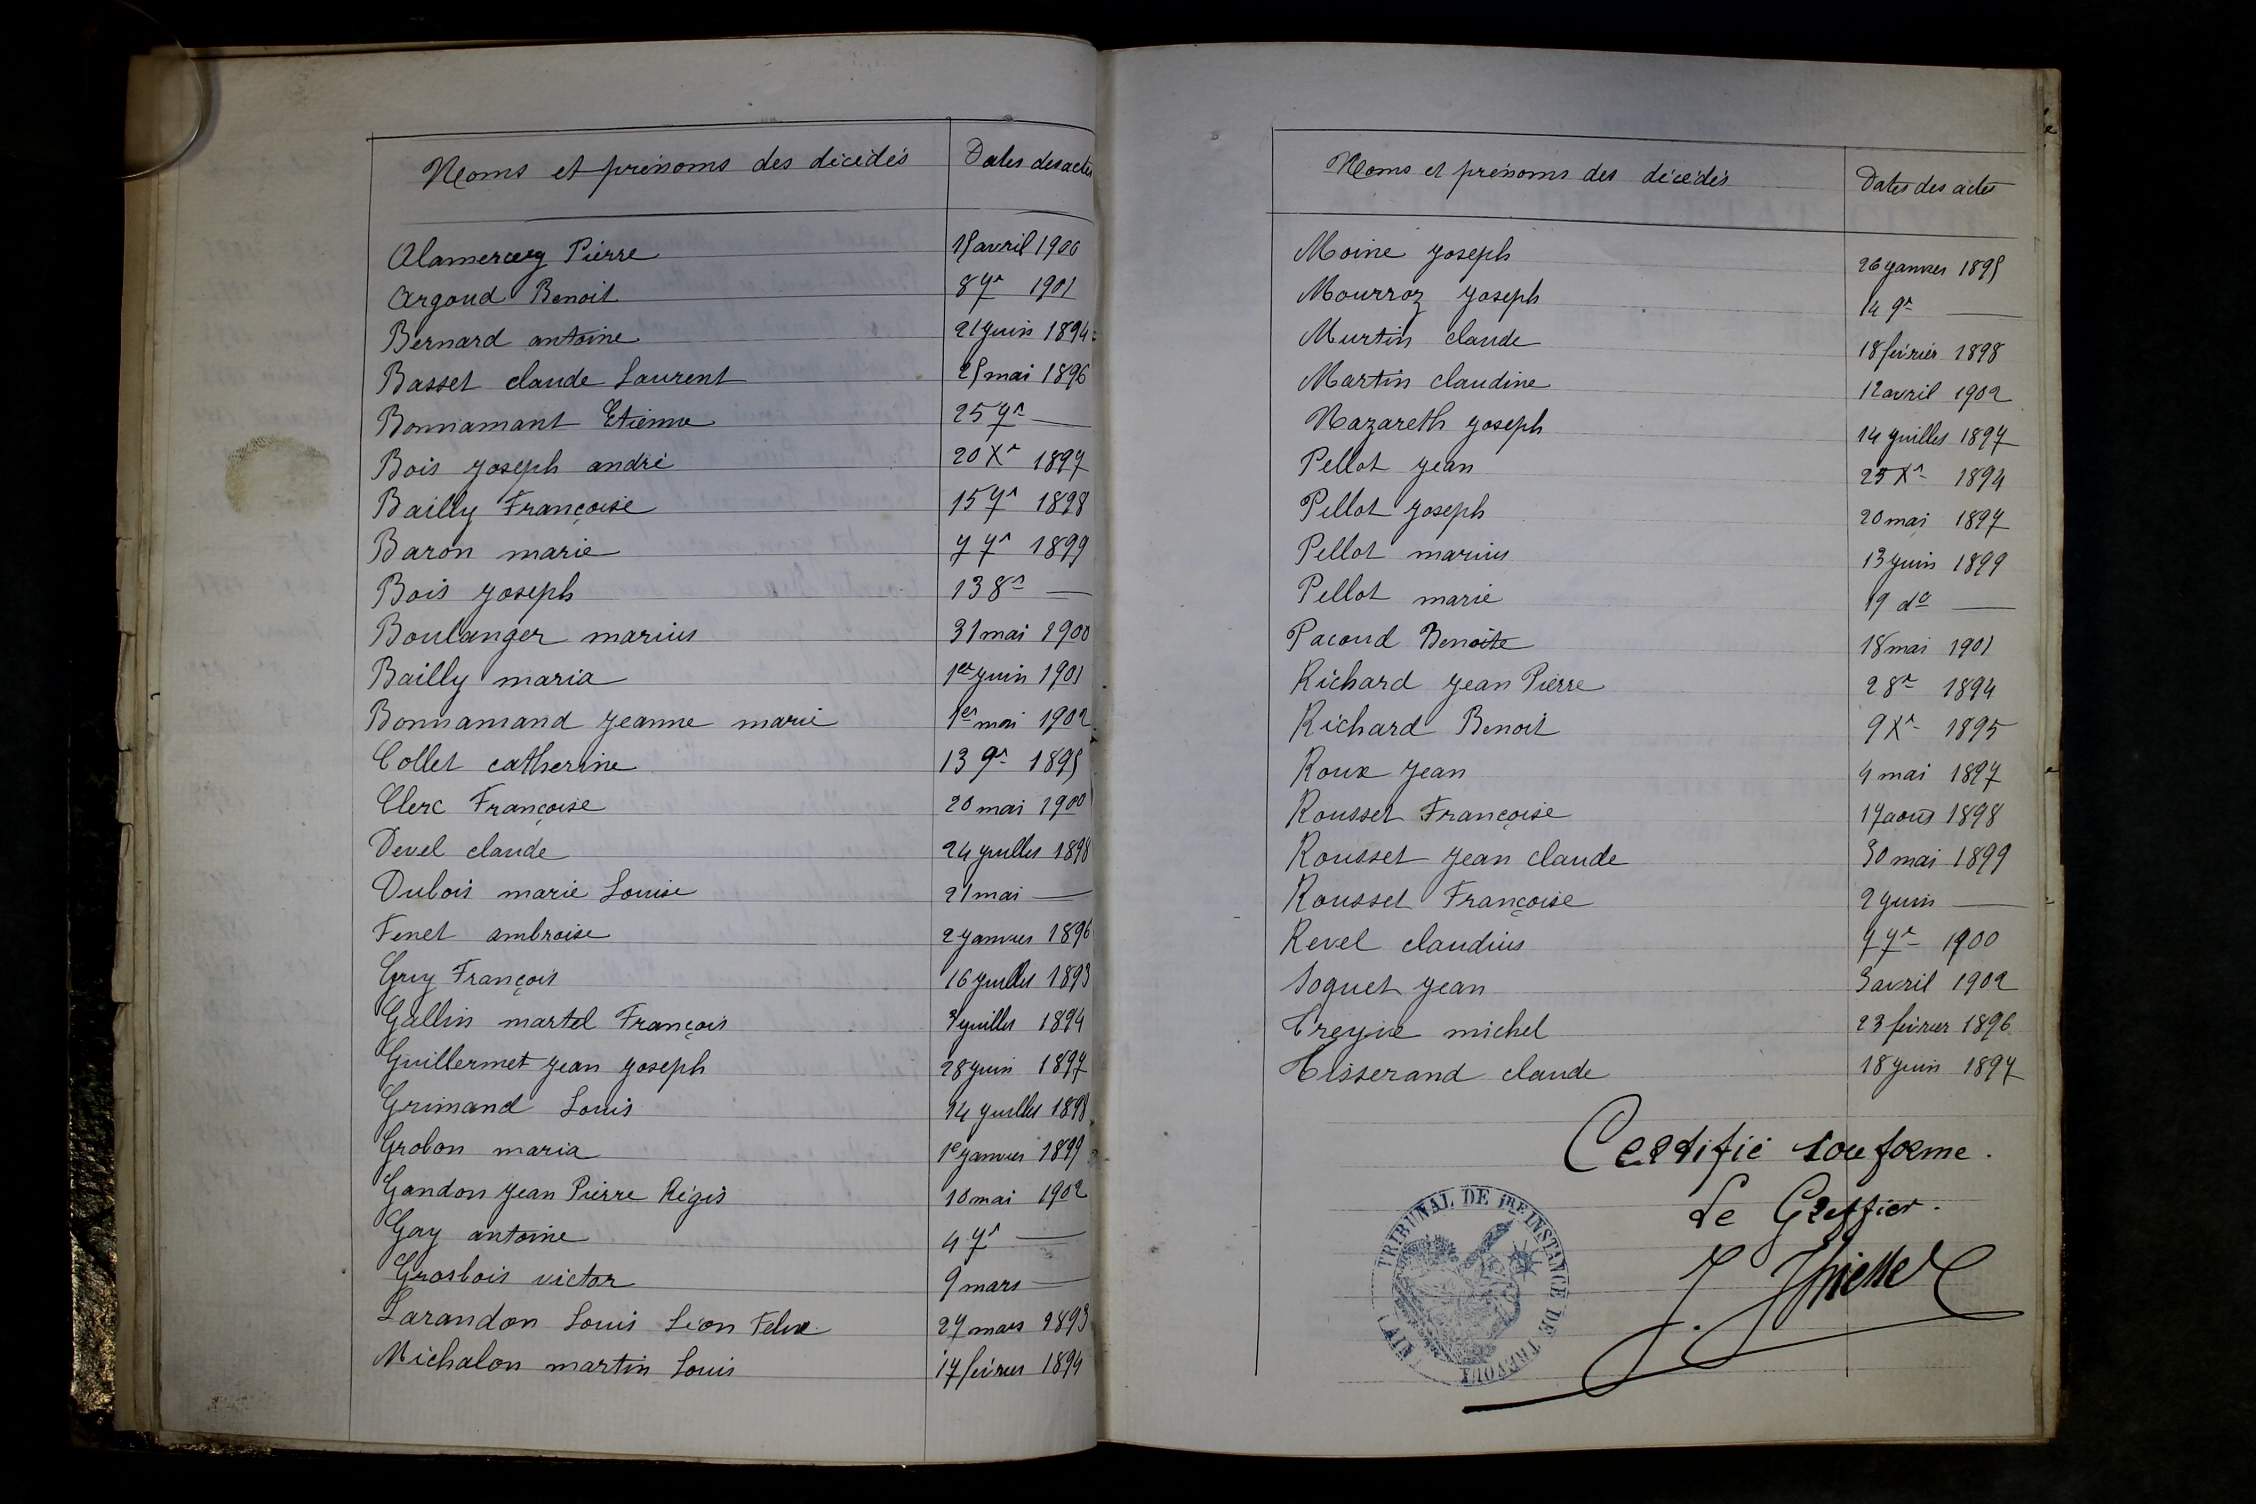 Noms et prénoms des décédés Dates des actes
Alamercery Pierre 15 avril 1900
Argoud Benoit 8 7r 1901
Bernard antoine 21 juin 1894
Basset claude Laurent 25 mai 1896
Bonnamant Etienne 25 7r —
Bois joseph andré 20 Xr 1897
Bailly Françoise 15 7r 1898
Baron marie 7 7r 1899
Bois joseph 13 8r —
Boulanger marius 31 mai 1900
Bailly maria 1er juin 1901
Bonnamand jeanne marie 1er mai 1902
Collet catherine 13 9r 1895
Clerc Françoise 20 mai 1900
Devel claude 24 juillet 1898
Dubois marie Louise 21 mai —
Fenet ambroise 2 janvier 1896
Guy François 16 juillet 1893
Gallin martel François 3 juillet 1894
Guillermet jean joseph 28 juin 1897
Grimand Louis 14 juillet 1898
Grobon maria 1er janvier 1899
Gandon jean Pierre Régis 10 mai 1902
Gay antoine 4 7r —
Grosbois victor 9 mars —
Larandon Louis Léon Felix 27 mars 1893
Michalon martin Louis 17 février 1894
Noms et prénoms des décédés Dates des actes
Moine joseph 26 janvier 1895
Mourroz joseph 14 9r —
Murtin claude 18 février 1898
Martin claudine 12 avril 1902
Nazareth joseph 14 juillet 1897
Pellot jean 25 Xr 1894
Pellot joseph 20 mai 1897
Pellot marius 13 juin 1899
Pellot marie 19 do —
Pacoud Benoite 18 mai 1901
Richard jean Pierre 2 8r 1894
Richard Benoit 9 Xr 1895
Roux jean 4 mai 1897
Rousset Françoise 17 août 1898
Rousset jean claude 30 mai 1899
Rousset Françoise 2 juin —
Revel claudius 7 7r 1900
Soquet jean 3 avril 1902
Treyve michel 23 février 1896
Tisserand claude 18 juin 1897
Certifié conforme.
Le Greffier.
TRIBUNAL DE 1RE INSTANCE DE TREVOUX (AIN)